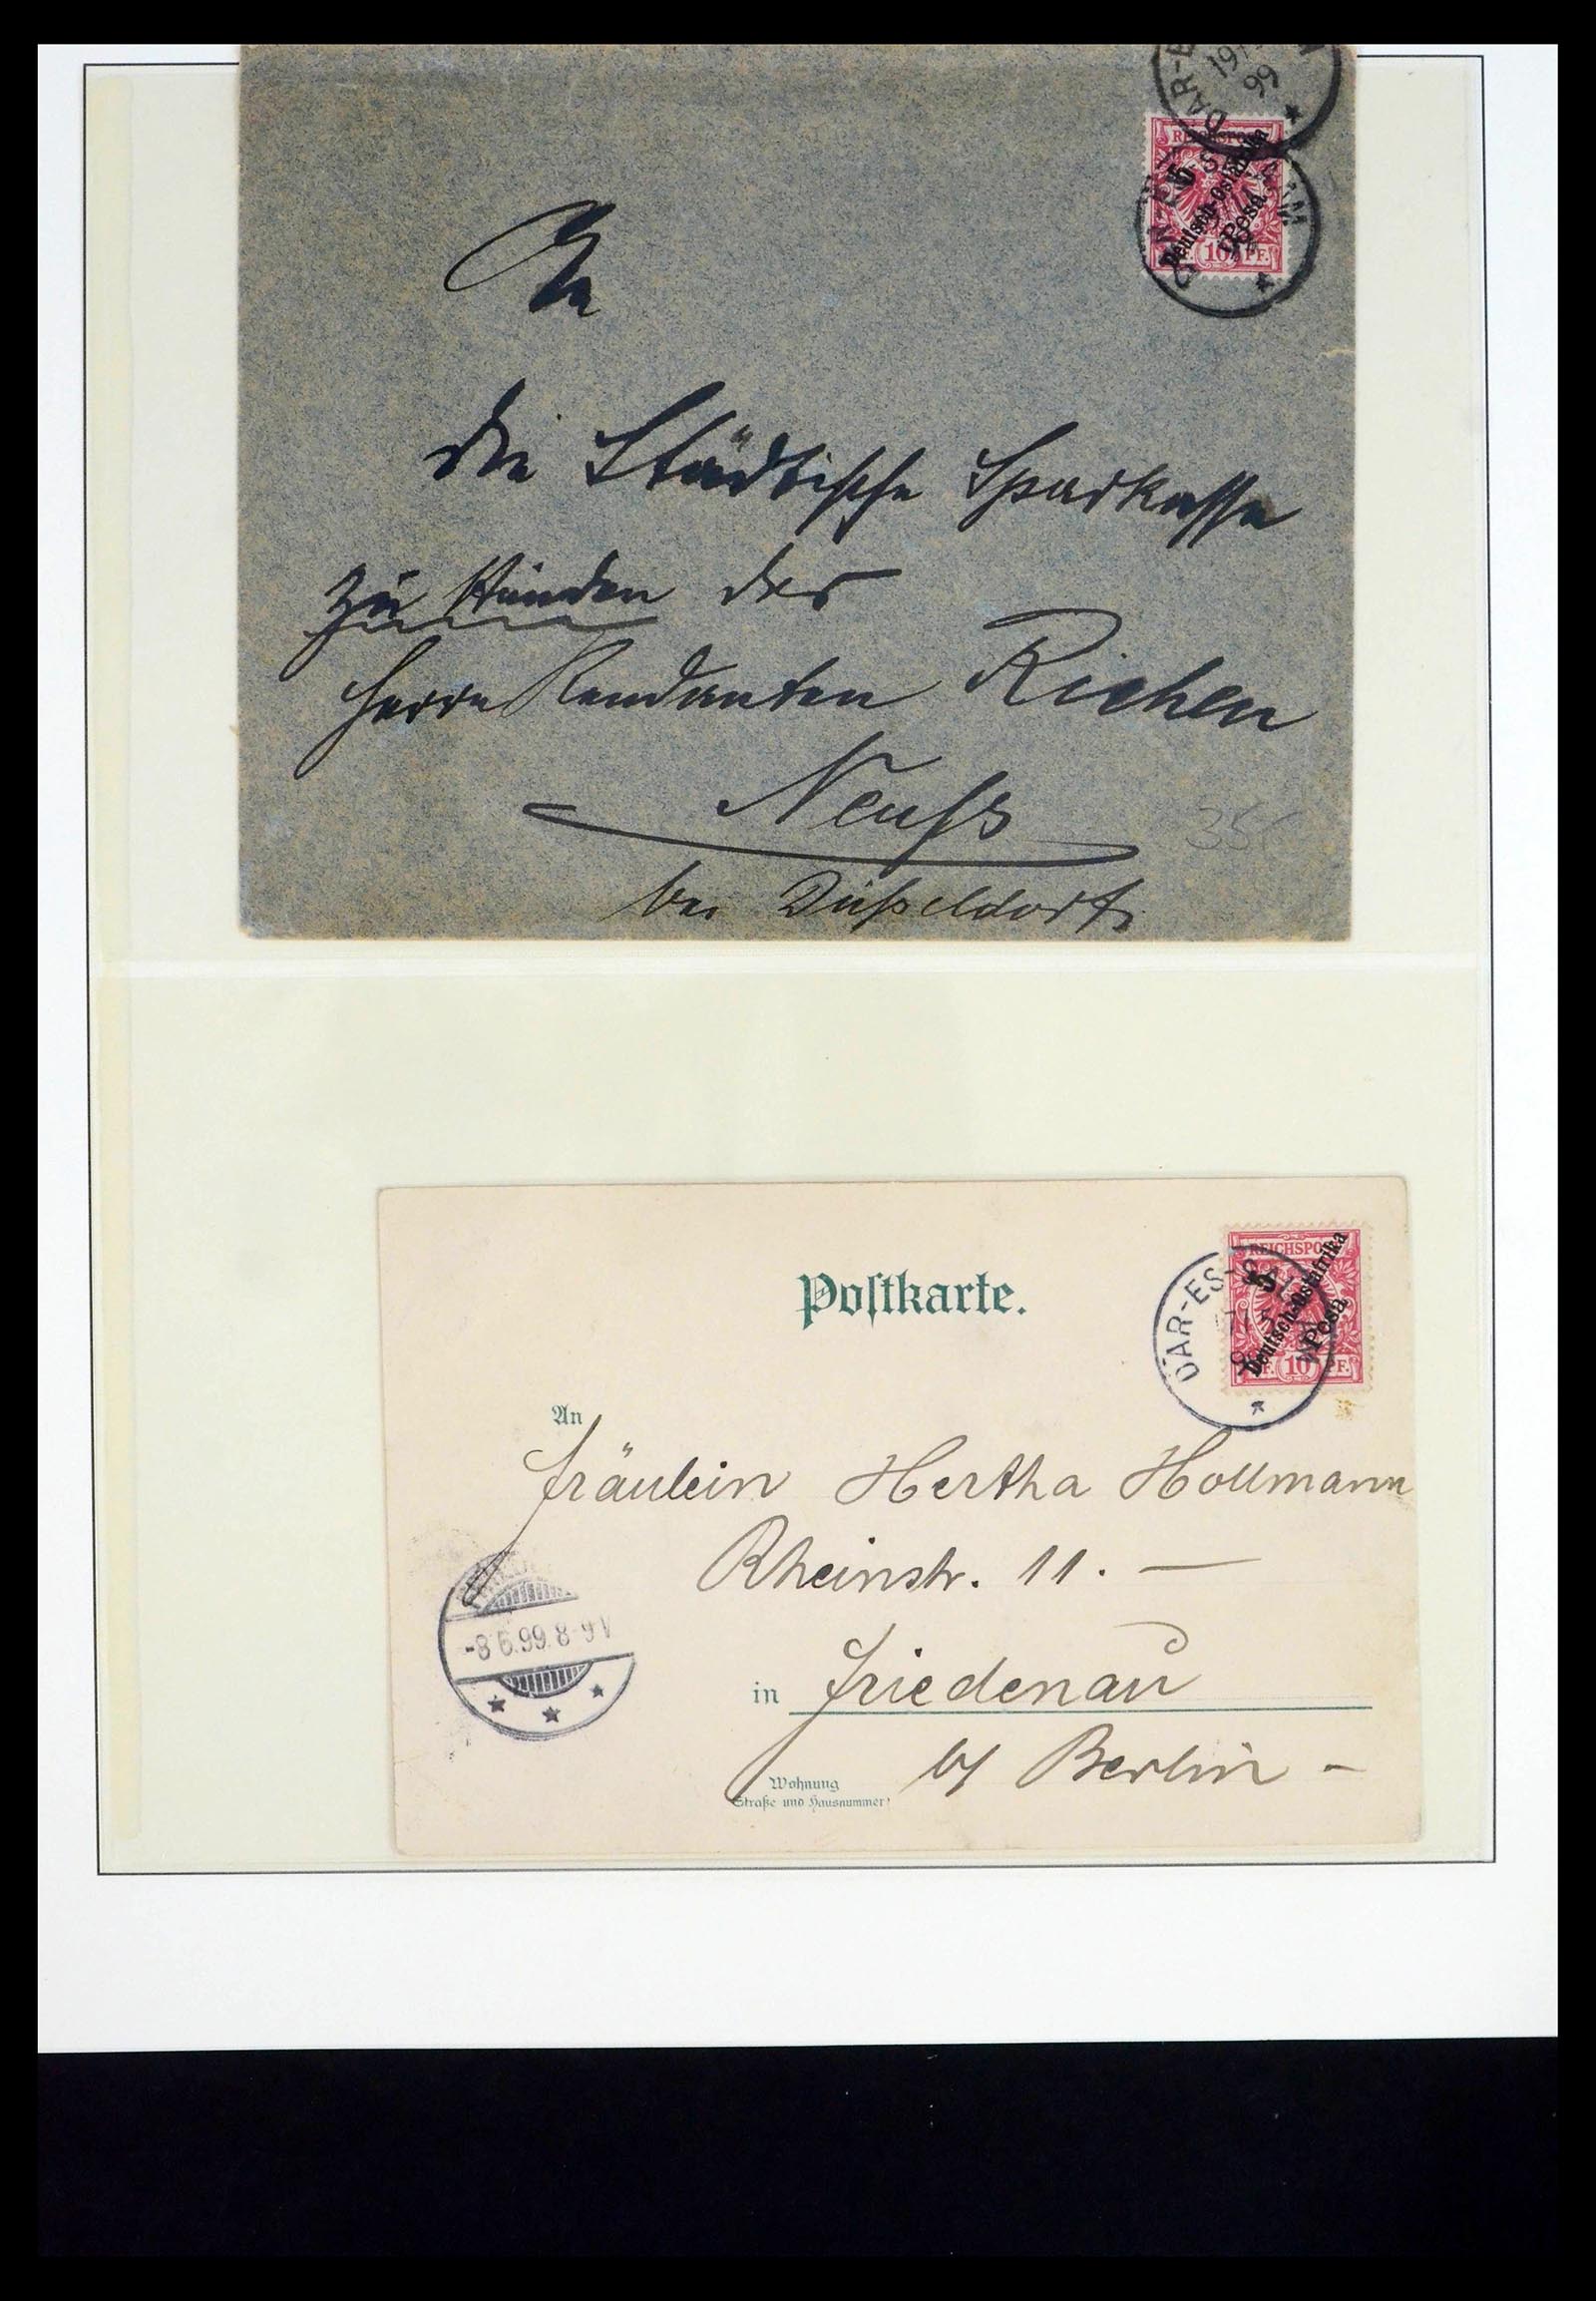 DAR-E
19
99
REICHSPOST
5
Deutsch-Ostafrika
Pesa
10 PF.
An
die Städtische Sparkasse
zu Händen des
Herrn Rendanten Richen
Neuss
bei Düsseldorf.
35
Postkarte.
DAR-ES-SALAAM
REICHSPOST
5
Deutsch-Ostafrika
Pesa
10 PF.
An
Fräulein Hertha Hollmann
Rheinstr. 11. —
-8 6.99. 8-9V
in Friedenau
b/ Berlin -
Wohnung
Straße und Hausnummer